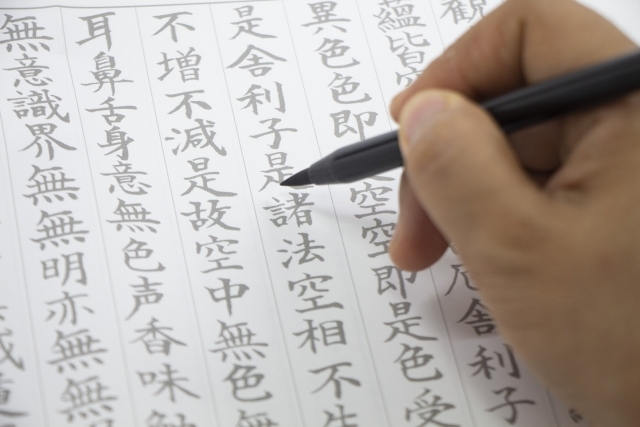 観
蘊皆空 厄舎利子
異色色即 空空即是色受
是舎利子是諸法空相不生
不増不減是故空中無色無
耳鼻舌身意無色声香味触
無意識界無無明亦無無明